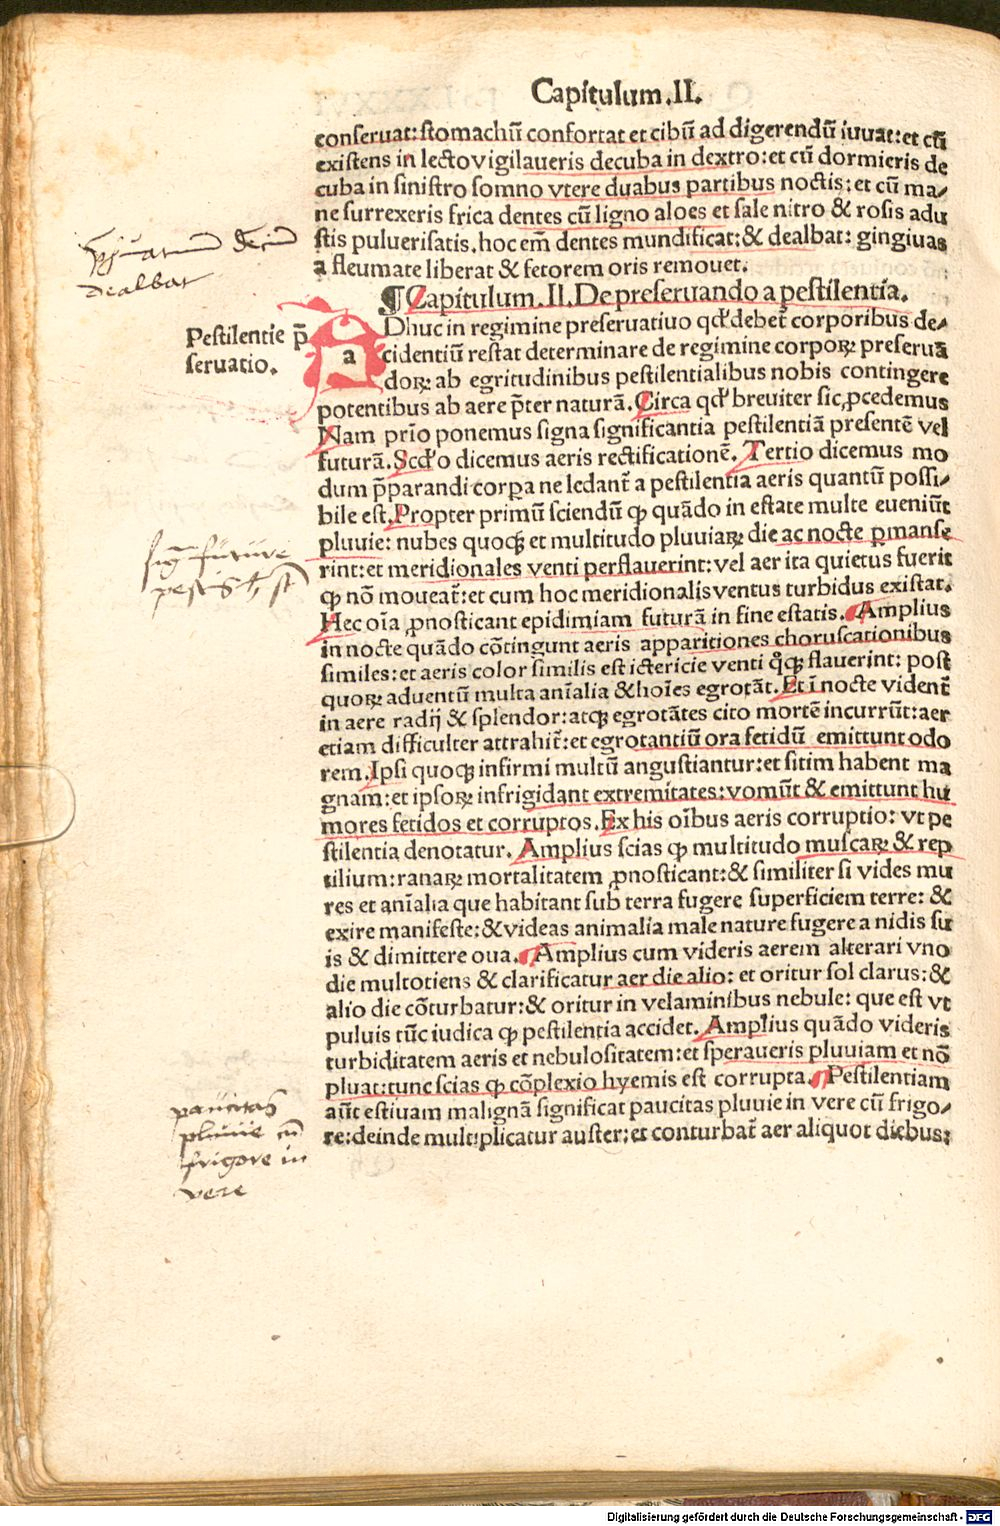 Capitulum.II.
conseruat:stomachū confortat et cibū ad digerendū iuuat:et cū
existens in lecto vigilaueris decuba in dextro:et cū dormieris de
cuba in sinistro somno vtere duabus partibus noctis:et cū ma/
ne surrexeris frica dentes cū ligno aloes et sale nitro & rosis adu
stis puluerisatis.hoc em̄ dentes mundificat:& dealbat: gingiuas
a fleumate liberat & fetorem oris remouet.
dealbat
¶Capitulum.II.De preseruando a pestilentia.
Pestilentie p̄
seruatio.
aDhuc in regimine preseruatiuo qd' debet̄ corporibus de/
cidentiū restat determinare de regimine corpoꝝ preseruā
doꝝ ab egritudinibus pestilentialibus nobis contingere
potentibus ab aere p̄ter naturā.Circa qd' breuiter sic ꝓcedemus
Nam prīo ponemus signa significantia pestilentiā presentē vel
futurā.Scd'o dicemus aeris rectificationē.Tertio dicemus mo
dum p̄parandi corpa ne ledant̄ a pestilentia aeris quantū possi/
bile est.Propter primū sciendū ꝙ quādo in estate multe eueniūt
pluuie: nubes quoqꝫ et multitudo pluuiaꝝ die ac nocte ꝑmanse
rint:et meridionales venti perflauerint:vel aer ita quietus fuerit
ꝙ nō moueat̄:et cum hoc meridionalis ventus turbidus existat.
Hec oīa ꝓnosticant epidimiam futurā in fine estatis.Amplius
in nocte quādo cōtingunt aeris apparitiones choruscationibus
similes:et aeris color similis est ictericie venti qͦqꝫ flauerint: post
quoꝝ aduentū multa anīalia & hoīes egrotāt.Et ī nocte vident̄
in aere radij & splendor:atqꝫ egrotātes cito mortē incurrūt:aer
etiam difficulter attrahit̄:et egrotantiū ora fetidū emittunt odo
rem.Ipsi quoqꝫ infirmi multū angustiantur:et sitim habent ma
gnam:et ipsoꝝ infrigidant extremitates:vomūt & emittunt hu
mores fetidos et corruptos.Ex his oībus aeris corruptio: vt pe
stilentia denotatur.Amplius scias ꝙ multitudo muscaꝝ & rep
tilium:ranaꝝ mortalitatem ꝓnosticant:& similiter si vides mu
res et anīalia que habitant sub terra fugere superficiem terre: &
exire manifeste:& videas animalia male nature fugere a nidis su
is & dimittere oua.Amplius cum videris aerem alterari vno
die multotiens & clarificatur aer die alio: et oritur sol clarus:&
alio die cōturbatur:& oritur in velaminibus nebule: que est vt
puluis tūc iudica ꝙ pestilentia accidet.Amplius quādo videris
turbiditatem aeris et nebulositatem:et speraueris pluuiam et nō
pluat:tunc scias ꝙ cōplexio hyemis est corrupta.Pestilentiam
aūt estiuam malignā significat paucitas pluuie in vere cū frigo/
re:deinde multiplicatur auster:et conturbat̄ aer aliquot diebus:
future
paucitas
pluuie cū
frigore in
vere
Digitalisierung gefördert durch die Deutsche Forschungsgemeinschaft - DFG